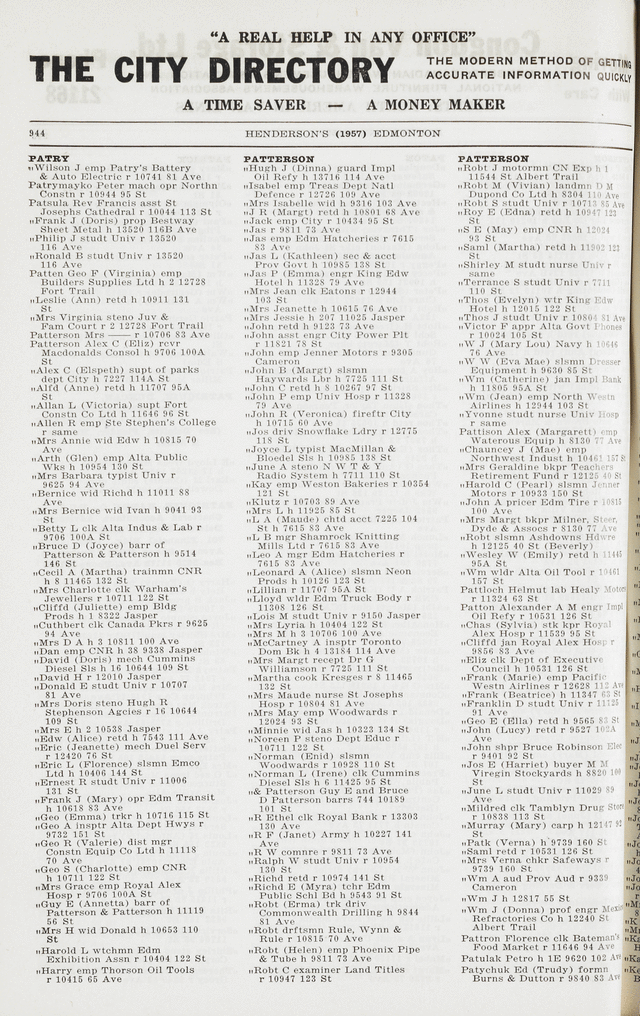 "A REAL HELP IN ANY OFFICE"
THE CITY DIRECTORY
THE MODERN METHOD OF GETTING
ACCURATE INFORMATION QUICKLY
A TIME SAVER — A MONEY MAKER
944
HENDERSON'S (1957) EDMONTON
PATRY
„Wilson J emp Patry's Battery
& Auto Electric r 10741 81 Ave
Patrymayko Peter mach opr Northn
Constn r 10944 95 St
Patsula Rev Francis asst St
Josephs Cathedral r 10044 113 St
„Frank J (Doris) prop Bestway
Sheet Metal h 13520 116B Ave
„Philip J studt Univ r 13520
116 Ave
„Ronald B studt Univ r 13520
116 Ave
Patten Geo F (Virginia) emp
Builders Supplies Ltd h 2 12728
Fort Trail
„Leslie (Ann) retd h 10911 131
St
„Mrs Virginia steno Juv &
Fam Court r 2 12728 Fort Trail
Patterson Mrs —— r 10706 83 Ave
Patterson Alex C (Eliz) rcvr
Macdonalds Consol h 9706 100A
St
„Alex C (Elspeth) supt of parks
dept City h 7227 114A St
„Alfd (Anne) retd h 11707 95A
St
„Allan L (Victoria) supt Fort
Constn Co Ltd h 11646 96 St
„Allen R emp Ste Stephen's College
r same
„Mrs Annie wid Edw h 10815 70
Ave
„Arth (Glen) emp Alta Public
Wks h 10954 130 St
„Mrs Barbara typist Univ r
9625 94 Ave
„Bernice wid Richd h 11011 88
Ave
„Mrs Bernice wid Ivan h 9041 93
St
„Betty L clk Alta Indus & Lab r
9706 100A St
„Bruce D (Joyce) barr of
Patterson & Patterson h 9514
146 St
„Cecil A (Martha) trainmn CNR
h 8 11465 132 St
„Mrs Charlotte clk Warham's
Jewellers r 10711 122 St
„Cliffd (Juliette) emp Bldg
Prods h 1 8322 Jasper
„Cuthbert clk Canada Pkrs r 9625
94 Ave
„Mrs D A h 3 10811 100 Ave
„Dan emp CNR h 38 9338 Jasper
„David (Doris) mech Cummins
Diesel Sls h 16 10644 109 St
„David H r 12010 Jasper
„Donald E studt Univ r 10707
81 Ave
„Mrs Doris steno Hugh R
Stephenson Agcies r 16 10644
109 St
„Mrs E h 2 10538 Jasper
„Edw (Alice) retd h 7543 111 Ave
„Eric (Jeanette) mech Duel Serv
r 12420 76 St
„Eric L (Florence) slsmn Emco
Ltd h 10406 144 St
„Ernest R studt Univ r 11006
131 St
„Frank J (Mary) opr Edm Transit
h 10618 83 Ave
„Geo (Emma) trkr h 10716 115 St
„Geo A insptr Alta Dept Hwys r
9732 151 St
„Geo R (Valerie) dist mgr
Constn Equip Co Ltd h 11118
70 Ave
„Geo S (Charlotte) emp CNR
h 10711 122 St
„Mrs Grace emp Royal Alex
Hosp r 9706 100A St
„Guy E (Annetta) barr of
Patterson & Patterson h 11119
56 St
„Mrs H wid Donald h 10653 110
St
„Harold L wtchmn Edm
Exhibition Assn r 10404 122 St
„Harry emp Thorson Oil Tools
r 10415 65 Ave
PATTERSON
„Hugh J (Dinna) guard Impl
Oil Refy h 13716 114 Ave
„Isabel emp Treas Dept Natl
Defence r 12726 109 Ave
„Mrs Isabella wid h 9316 103 Ave
„J R (Margt) retd h 10801 68 Ave
„Jack emp City r 10434 95 St
„Jas r 9811 73 Ave
„Jas emp Edm Hatcheries r 7615
83 Ave
„Jas L (Kathleen) sec & acct
Prov Govt h 10985 138 St
„Jas P (Emma) engr King Edw
Hotel h 11328 79 Ave
„Mrs Jean clk Eatons r 12944
103 St
„Mrs Jeanette h 10615 76 Ave
„Mrs Jessie h 207 11025 Jasper
„John retd h 9123 73 Ave
„John asst engr City Power Plt
r 11821 78 St
„John emp Jenner Motors r 9305
Cameron
„John B (Margt) slsmn
Haywards Lbr h 7725 111 St
„John C retd h 8 10267 97 St
„John P emp Univ Hosp r 11328
79 Ave
„John R (Veronica) fireftr City
h 10715 60 Ave
„Jos driv Snowflake Ldry r 12775
118 St
„Joyce L typist MacMillan &
Bloedel Sls h 10985 138 St
„June A steno N W T & Y
Radio System h 7711 110 St
„Kay emp Weston Bakeries r 10354
121 St
„Klutz r 10703 89 Ave
„Mrs L h 11925 85 St
„L A (Maude) chtd acct 7225 104
St h 7615 83 Ave
„L B mgr Shamrock Knitting
Mills Ltd r 7615 83 Ave
„Leo A mgr Edm Hatcheries r
7615 83 Ave
„Leonard A (Alice) slsmn Neon
Prods h 10126 123 St
„Lillian r 11707 95A St
„Lloyd wldr Edm Truck Body r
11308 126 St
„Lois M studt Univ r 9150 Jasper
„Mrs Lyria h 10404 122 St
„Mrs M h 3 10706 100 Ave
„McCartney A insptr Toronto
Dom Bk h 4 13184 114 Ave
„Mrs Margt recept Dr G
Williamson r 7725 111 St
„Martha cook Kresges r 8 11465
132 St
„Mrs Maude nurse St Josephs
Hosp r 10804 81 Ave
„Mrs May emp Woodwards r
12024 93 St
„Minnie wid Jas h 10323 134 St
„Noreen P steno Dept Educ r
10711 122 St
„Norman (Enid) slsmn
Woodwards r 10928 110 St
„Norman L (Irene) clk Cummins
Diesel Sls h 6 11425 95 St
„& Patterson Guy E and Bruce
D Patterson barrs 744 10189
101 St
„R Ethel clk Royal Bank r 13303
130 Ave
„R F (Janet) Army h 10227 141
Ave
„R W comnre r 9811 73 Ave
„Ralph W studt Univ r 10954
130 St
„Richd retd r 10974 141 St
„Richd E (Myra) tchr Edm
Public Schl Bd h 9543 91 St
„Robt (Erma) trk driv
Commonwealth Drilling h 9844
81 Ave
„Robt drftsmn Rule, Wynn &
Rule r 10815 70 Ave
„Robt (Helen) emp Phoenix Pipe
& Tube h 9811 73 Ave
„Robt C examiner Land Titles
r 10947 123 St
PATTERSON
„Robt J motormn CN Exp h 1
11544 St Albert Trail
„Robt M (Vivian) landmn D M
Dupond Co Ltd h 8304 110 Ave
„Robt S studt Univ r 10713 85 Ave
„Roy E (Edna) retd h 10947 123
St
„S E (May) emp CNR h 12024
93 St
„Saml (Martha) retd h 11902 121
St
„Shirley M studt nurse Univ r
same
„Terrance S studt Univ r 7711
110 St
„Thos (Evelyn) wtr King Edw
Hotel h 12015 122 St
„Thos J studt Univ r 10804 81 Ave
„Victor F appr Alta Govt Phones
r 10024 105 St
„W J (Mary Lou) Navy h 10646
76 Ave
„W W (Eva Mae) slsmn Dresser
Equipment h 9630 85 St
„Wm (Catherine) jan Impl Bank
h 11805 95A St
„Wm (Jean) emp North Westn
Airlines h 12944 103 St
„Yvonne studt nurse Univ Hosp
r same
Pattison Alex (Margaret) emp
Waterous Equip h 8130 77 Ave
„Chauncey J (Mae) emp
Northwest Indust h 10461 157 St
„Mrs Geraldine bkpr Teachers
Retirement Fund r 12125 40 St
„Harold C (Pearl) slsmn Jenner
Motors r 10933 150 St
„John A pricer Edm Tire r 10815
100 Ave
„Mrs Margt bkpr Milner, Steer,
Dyde & Assocs r 8130 77 Ave
„Robt slsmn Ashdowns Hdwre
h 12125 40 St (Beverly)
„Wesley W (Emily) retd h 11445
95A St
„Wm wldr Alta Oil Tool r 10461
157 St
Pattloch Helmut lab Healy Motors
r 11324 63 St
Patton Alexander A M engr Impl
Oil Refy r 10531 126 St
„Chas (Sylvia) stk kpr Royal
Alex Hosp r 11539 95 St
„Cliffd jan Royal Alex Hosp r
9856 83 Ave
„Eliz clk Dept of Executive
Council h 10531 126 St
„Frank (Marie) emp Pacific
Westn Airlines r 12628 112 Ave
„Frank (Beatrice) h 11347 63 St
„Franklin D studt Univ r 11125
91 Ave
„Geo E (Ella) retd h 9565 83 St
„John (Lucy) retd r 9527 102A
Ave
„John shpr Bruce Robinson Elec
r 9401 92 St
„Jos E (Harriet) buyer M M
Viregin Stockyards h 8820 100
St
„June L studt Univ r 11029 89
Ave
„Mildred clk Tamblyn Drug Store
r 10838 113 St
„Murray (Mary) carp h 12147 92
St
„Patk (Verna) h 9739 160 St
„Saml retd r 10531 126 St
„Mrs Verna chkr Safeways r
9739 160 St
„Wm A aud Prov Aud r 9339
Cameron
„Wm J h 12817 55 St
„Wm J (Donna) prof engr Mexic
Refractories Co h 12240 St
Albert Trail
Pattron Florence clk Bateman's
Food Market r 11646 94 Ave
Patulak Petro h 1E 9620 102 Ave
Patychuk Ed (Trudy) formn
Burns & Dutton r 9840 83 Ave